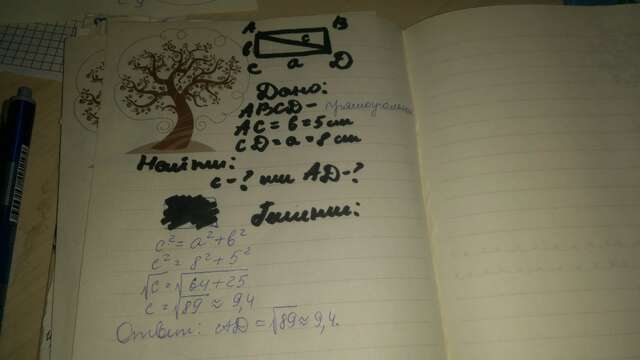 A B
b c
C a D
Дано:
ABCD - прямоугольник
AC = b = 5 см
CD = a = 8 см
Найти:
c - ? или AD - ?
Решение:
c² = a² + b²
c² = 8² + 5²
√c = √64 + 25
c = √89 ≈ 9,4
Ответ: AD = √89 ≈ 9,4.